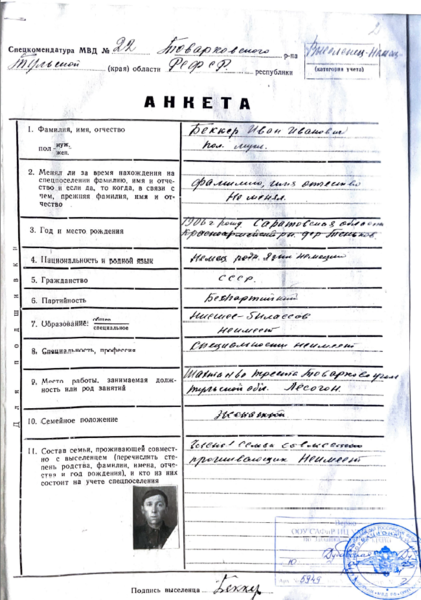 2
Спецкомендатура МВД № 22 Товарковского р-на
Тульской (края) области РСФСР республики
Выселенец-Немец
(категория учета)
АНКЕТА
1. Фамилия, имя, отчество
Беккер Иван Иванович
пол муж. жен.
пол муж.
2. Менял ли за время нахождения на
спецпоселении фамилию, имя и отче-
ство и если да, то когда, в связи с
чем, прежняя фамилия, имя и от-
чество
фамилию, имя отчество
не менял.
3. Год и место рождения
1906 г рожд. Саратовская область
4. Национальность и родной язык
Немец родн. язык немецкий
5. Гражданство
СССР.
6. Партийность
Беспартийный
7. Образование: общее специальное
низшее-
неимеет
8. Специальность, профессия
Специальности неимеет
9. Место работы, занимаемая долж-
ность или род занятий
Шахта треста Товарковуголь
Тульской обл. Лесогон.
10. Семейное положение
Женатый
11. Состав семьи, проживающей совмест-
но с выселенцем (перечислить сте-
пень родства, фамилии, имена, отче-
ства и год рождения), и кто из них
состоит на учете спецпоселения
семьи совместно
проживающих Неимеет
Для подшивки
Подпись выселенца Беккер